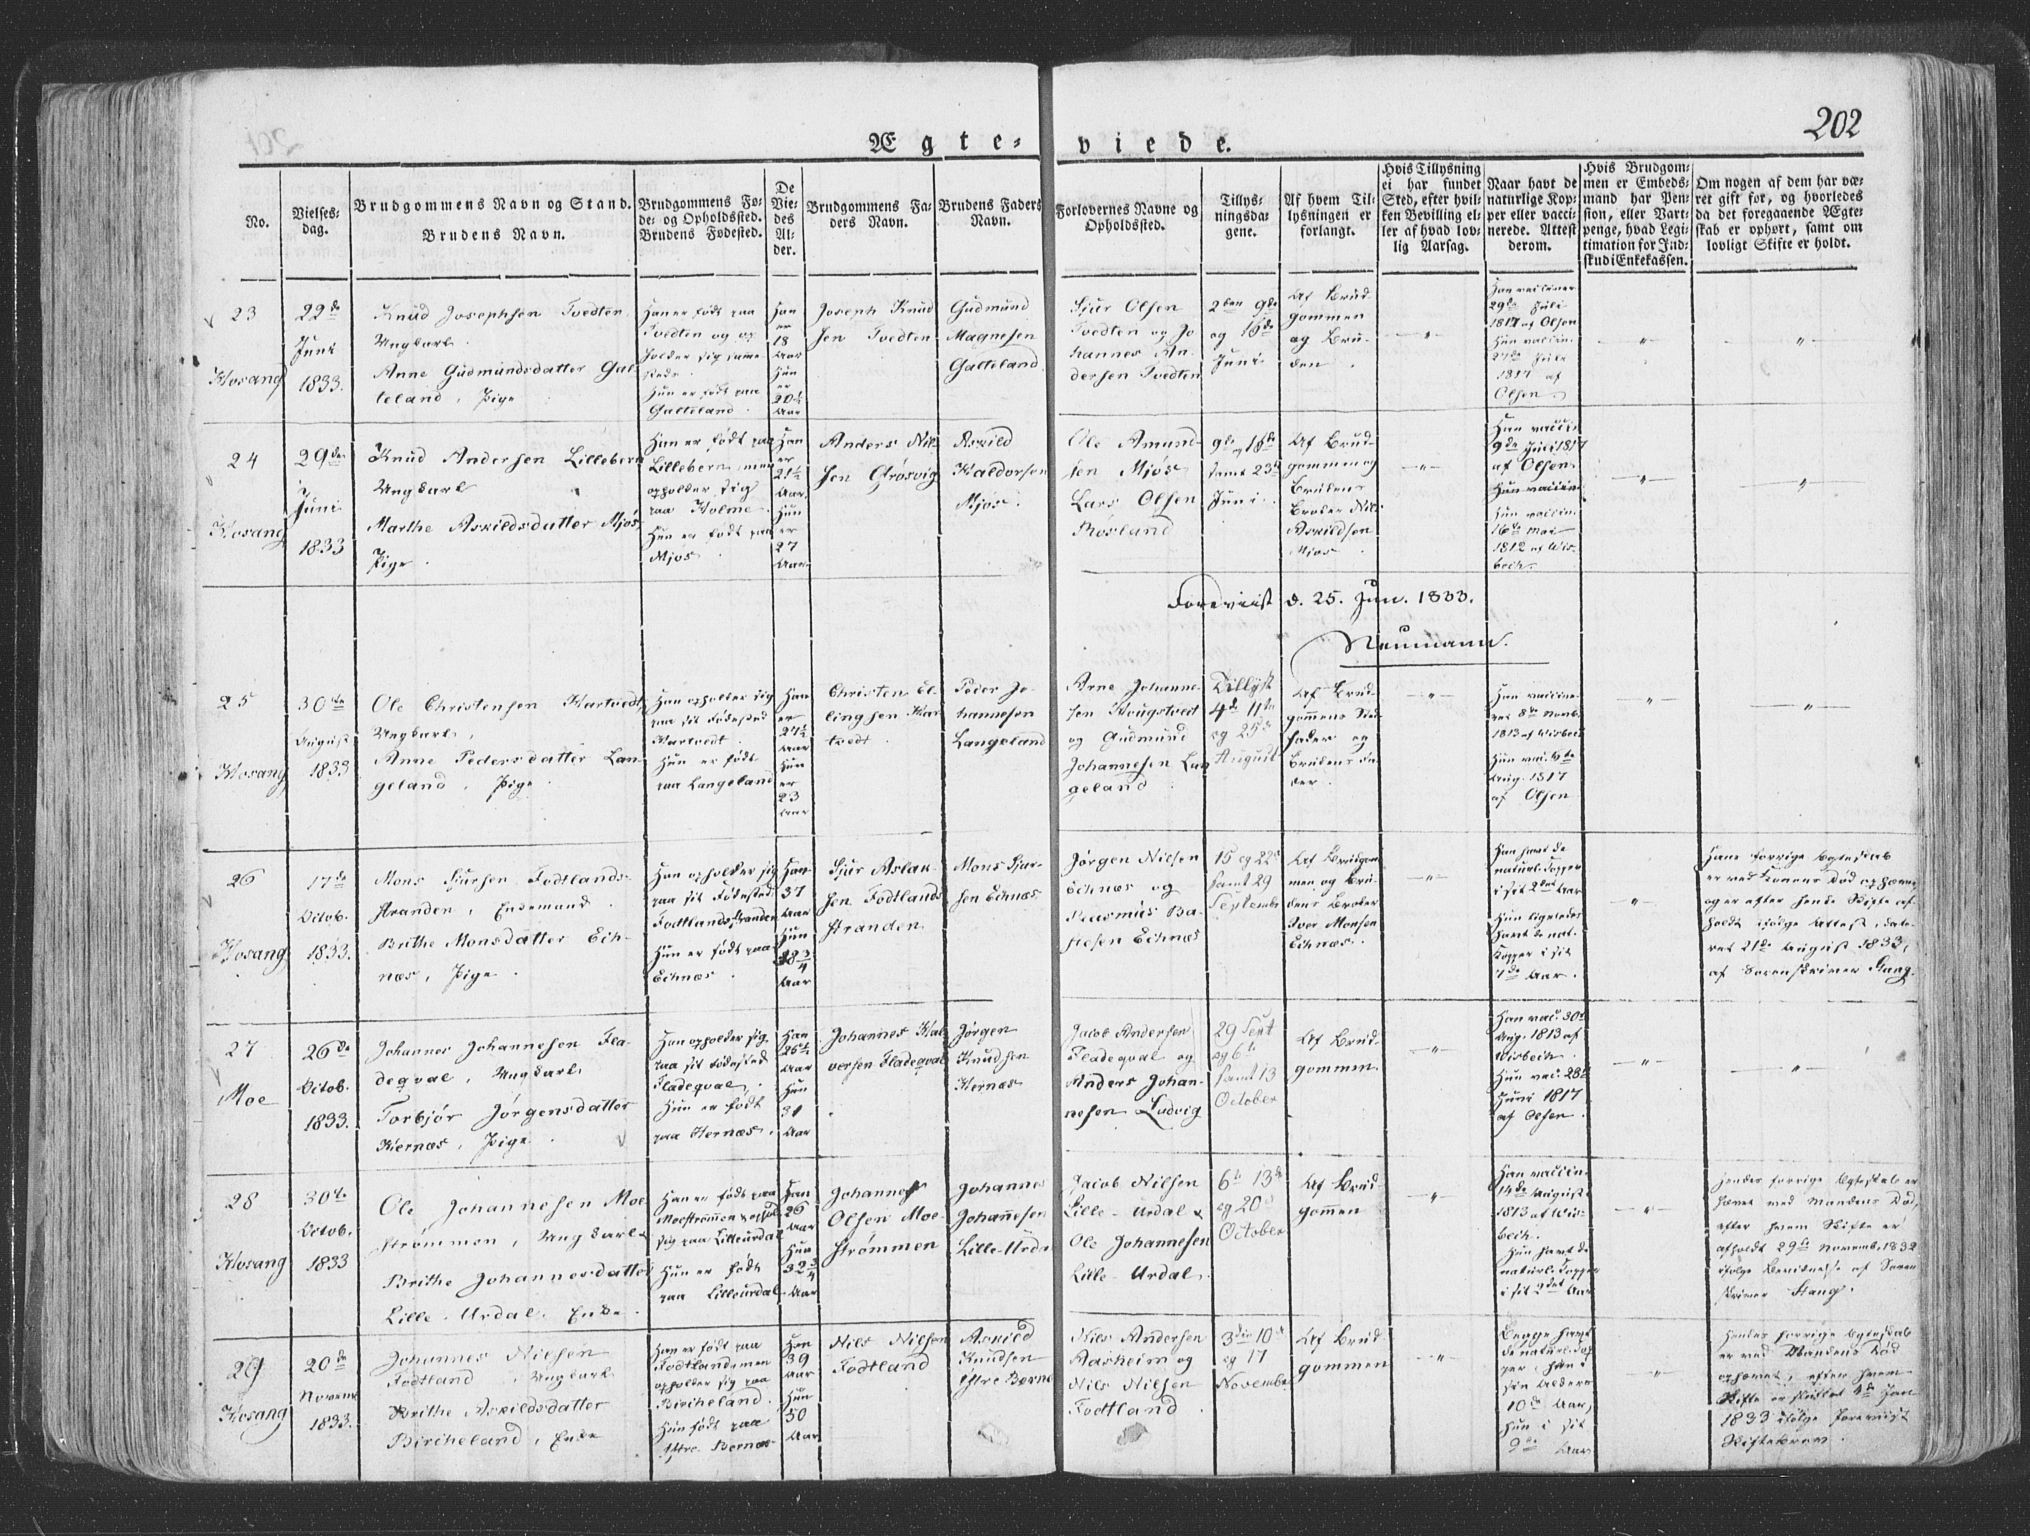 202
Ægte-viede.
No.
Vielses-
dag.
Brudgommens Navn og Stand.
Brudens Navn.
Brudgommens Fø-
de- og Opholdssted.
Brudens Fødested.
De
Vie-
des
Al-
der.
Brudgommens Fa-
ders Navn.
Brudens Faders
Navn.
Forlovernes Navne og
Opholdssted.
Tillys-
ningsda-
gene.
Af hvem Til-
lysningen er
forlangt.
Hvis Tillysning
ei har fundet
Sted, efter hvil-
ken Bevilling el-
ler af hvad lov-
lig Aarsag.
Naar havt de
naturlige Kop-
per eller vacci-
nerede. Attest
derom.
Hvis Brudgom-
men er Embeds-
mand har Pen-
sion, eller Vart-
penge, hvad Legi-
timation for Ind-
skud i Enkekassen.
Om nogen af dem har væ-
ret gift før, og hvorledes
da det foregaaende Ægte-
skab er ophørt, samt om
lovligt Skifte er holdt.
23
Hosang
22de
Juni
1833.
Knud Josephsen Tvedten
Ungkarl.
Anne Gudmundsdatter Gal-
teland, Pige
Han er født paa
Tvedten og op
holder sig samme
steds.
Hun er født paa
Galteland.
Han
er
18
Aar
Hun
er
20½
Aar
Joseph Knud
sen Tvedten
Gudmund
Magnesen
Galteland.
Sjur Olsen
Tvedten og Jo
hannes An
dersen Tvedten
2den 9de
og 16de
Juni
Af Brud-
gommen
og Bru-
den.
"
Han vaccineret
29de Juli
1817 af Olsen
Hun vaccin.
27de Juli
1817 af
Olsen.
"
"
24
Hosang
29de
Juni
1833
Knud Andersen Lillebern
Ungkarl
Marthe Askildsdatter Mjøs
Pige.
Han er født paa
Lillebern, men
opholder sig
paa Holme.
Hun er født paa
Mjøs.
Han
er
21½
Aar
Hun
er
27
Aar
Anders Nil
sen Grøsvig
Askild
Haldorsen
Mjøs.
Ole Amund-
sen Mjøs
Lars Olsen
Rosland
9de og 16de
samt 23de
Juni.
Af Brud-
gommen og
Brudens
Broder Nils
Askildsen
Mjøs.
"
Han vacci.
9de Juni 1817
af Olsen.
Hun vaccin.
Hun vaccin.
16de Mai
1812 af Wis-
bech.
"
"
Foreviist d. 25. Jun. 1833.
Neumann.
25
Hosang
30te
August
1833
Ole Christensen Hartvedt
Ungkarl,
Anne Pedersdatter Lan-
geland, Pige
Han opholder sig
paa sit Fødested
Hartvedt.
Hun er født
paa Langeland
Han
er
27½
Aar
Hun
er
23
Aar
Christen El-
lingsen Har
tvedt.
Peder Jo-
hannesen
Langeland
Arne Johanne-
sen Hougstvedt
og Gudmund
Johannesen Lan
geland
Tillyst
4de 11te
og 25de
August
Af Brud-
gommens Sted
fader og
Brudens Fa-
der.
"
Han vaccine-
ret 8de Novb.
1813 af Wisbech
Hun vac. 4de
Aug. 1817
af Olsen
"
"
26
Hosang
17de
Octob.
1833.
Mons Sjursen Fodtlands-
stranden, Enkemand.
Brithe Monsdatter Eih-
næs, Pige.
Han opholder sig
paa sit Fødested
Fodtlandsstranden
Hun er født paa
Eihnæs.
Han
37
Aar
Hun
38¾
Aar
Sjur Aslak
sen Fodtlands
stranden
Mons Sjur-
sen Eihnæs
Jørgen Nilsen
Eihnæs og
Rasmus Ba-
stesen Eihnæs
15 og 22de
samt 29
September
Af Brudgom-
men og Bru-
dens Broder
Iver Monsen
Eihnæs.
"
Han havt de
naturl. Kopper
i sit 2det Aar
Hun ligeledes
havt de nat.
Kopper i sit
7de Aar.
"
Hans forrige Egteskab
er ved Konens Død ophævet
og er efter hende Skifte af-
holdt ifølge Attest, date-
ret 21de August 1833,
af Sorenskriver Stang.
27
Moe
26de
Octob.
1833.
Johannes Johannesen Fla-
deqval, Ungkarl
Torbjør Jørgensdatter
Hernæs, Pige.
Han opholder sig
paa sit Fødested
Fladeqval.
Hun er født
paa Hernæs.
Han
25½
Aar
Hun
31
Aar
Johannes Hal
versen Fladeqval
Jørgen
Knudsen
Hernæs
Jacob Andersen
Fladeqval og
Anders Johan-
nesen Ludvig
29 Sept
og 6te
samt 13
October
Af Brud-
gommen.
"
Han vac. 30te
Aug. 1813 af
Wisbech.
Hun vac. 28de
Juni 1817
af Olsen.
"
"
28
Hosang
30te
Octob.
1833
Ole Johannesen Moe
strømmen, Ungkarl
Brithe Johannesdatter
Lille-Urdal, Enke.
Han er født paa
Moestrømmen & ophol
sig paa Lilleurdal
Hun er født
paa Lilleurdal
Han
26
Aar
Hun
32¾
Aar
Johannes
Olsen Moe-
strømmen
Johannes
Johannesen
Lille-Urdal
Jacob Nilsen
Lille-Urdal &
Ole Johannesen
Lille-Urdal.
6te 13de
og 20de
October
Af Brud-
gommen
"
Han vaccin.
14de August
1813 af Wis-
bech.
Hun havt de
naturl. Kopper
i sit 2det Aar
"
Hendes forrige Egteskab er
hævet ved Mandens Død,
efter hvem Skifte er
afholdt 29de Novemb. 1832
ifølge Bevidnelse af Soren
skriver Stang.
29
Hosang
20de
Novemb.
1833.
Johannes Nilsen
Fodtland, Ungkarl
Brithe Askildsdatter
Bircheland, Enke
Han er født paa
Fodtland men
opholder sig paa
Bircheland.
Hun født paa
Ytre Bernæs
Han
39
Aar
Hun
50
Aar
Nils Nilsen
Fodtland
Askild
Knudsen
Ytre Berne
Nils Andersen
Aasheim og
Nils Nilsen
Fodtland
3die 10de
og 17
November
Af Brud
gommen
"
Begge havt
de naturl. Kop
per, han i
sin Alders
10de Aar,
hun i sit
9de Aar
"
Hendes forrige Egteskab
er ved Mandens Død
ophævet, efter hvem
Skifte er sluttet 4de Jan
1833 ifølge foreviist
Skiftebrev.